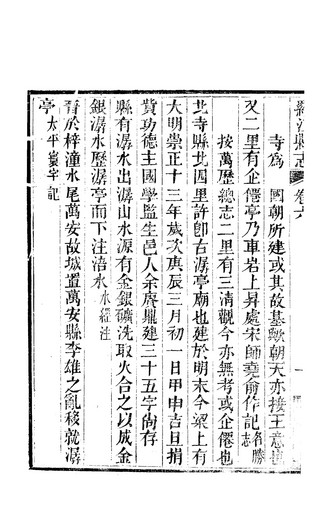 羅江縣志 卷六 一
寺爲 國朝所建或其故基歟朝天亦接王意也
又二里有企僊亭乃車岩上昇處宋師堯俞作記名勝志
按萬歷總志二里有三清觀今亦無考或企僊也
北寺縣北四里許卽古潺亭廟也建於明末今梁上有
大明崇正十三年歲次庚辰三月初一日甲申吉旦捐
貲功德主國學監生邑人余鼎建三十五字尚存
縣有潺水出潺山水源有金銀礦洗取火合之以成金
銀潺水歷潺亭而下注涪水水經注
晉於梓潼水尾萬安故城置萬安縣李雄之亂移就潺
亭太平寰宇記